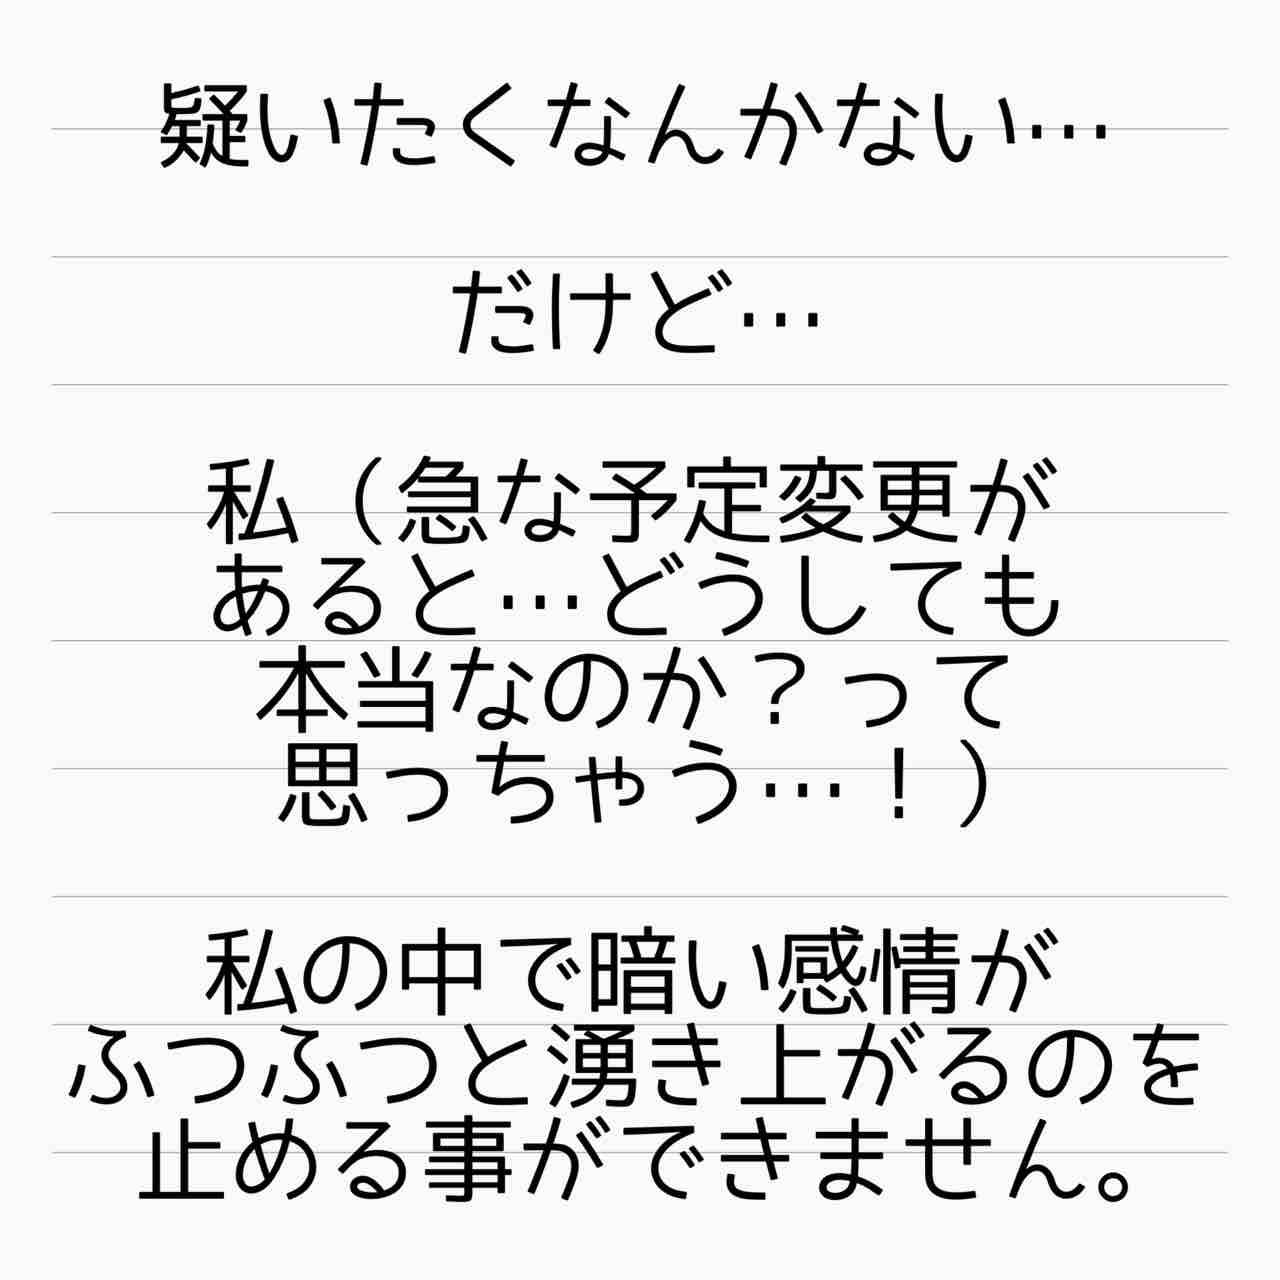 疑いたくなんかない…
だけど…
私（急な予定変更が
あると…どうしても
本当なのか？って
思っちゃう…！）
私の中で暗い感情が
ふつふつと湧き上がるのを
止める事ができません。